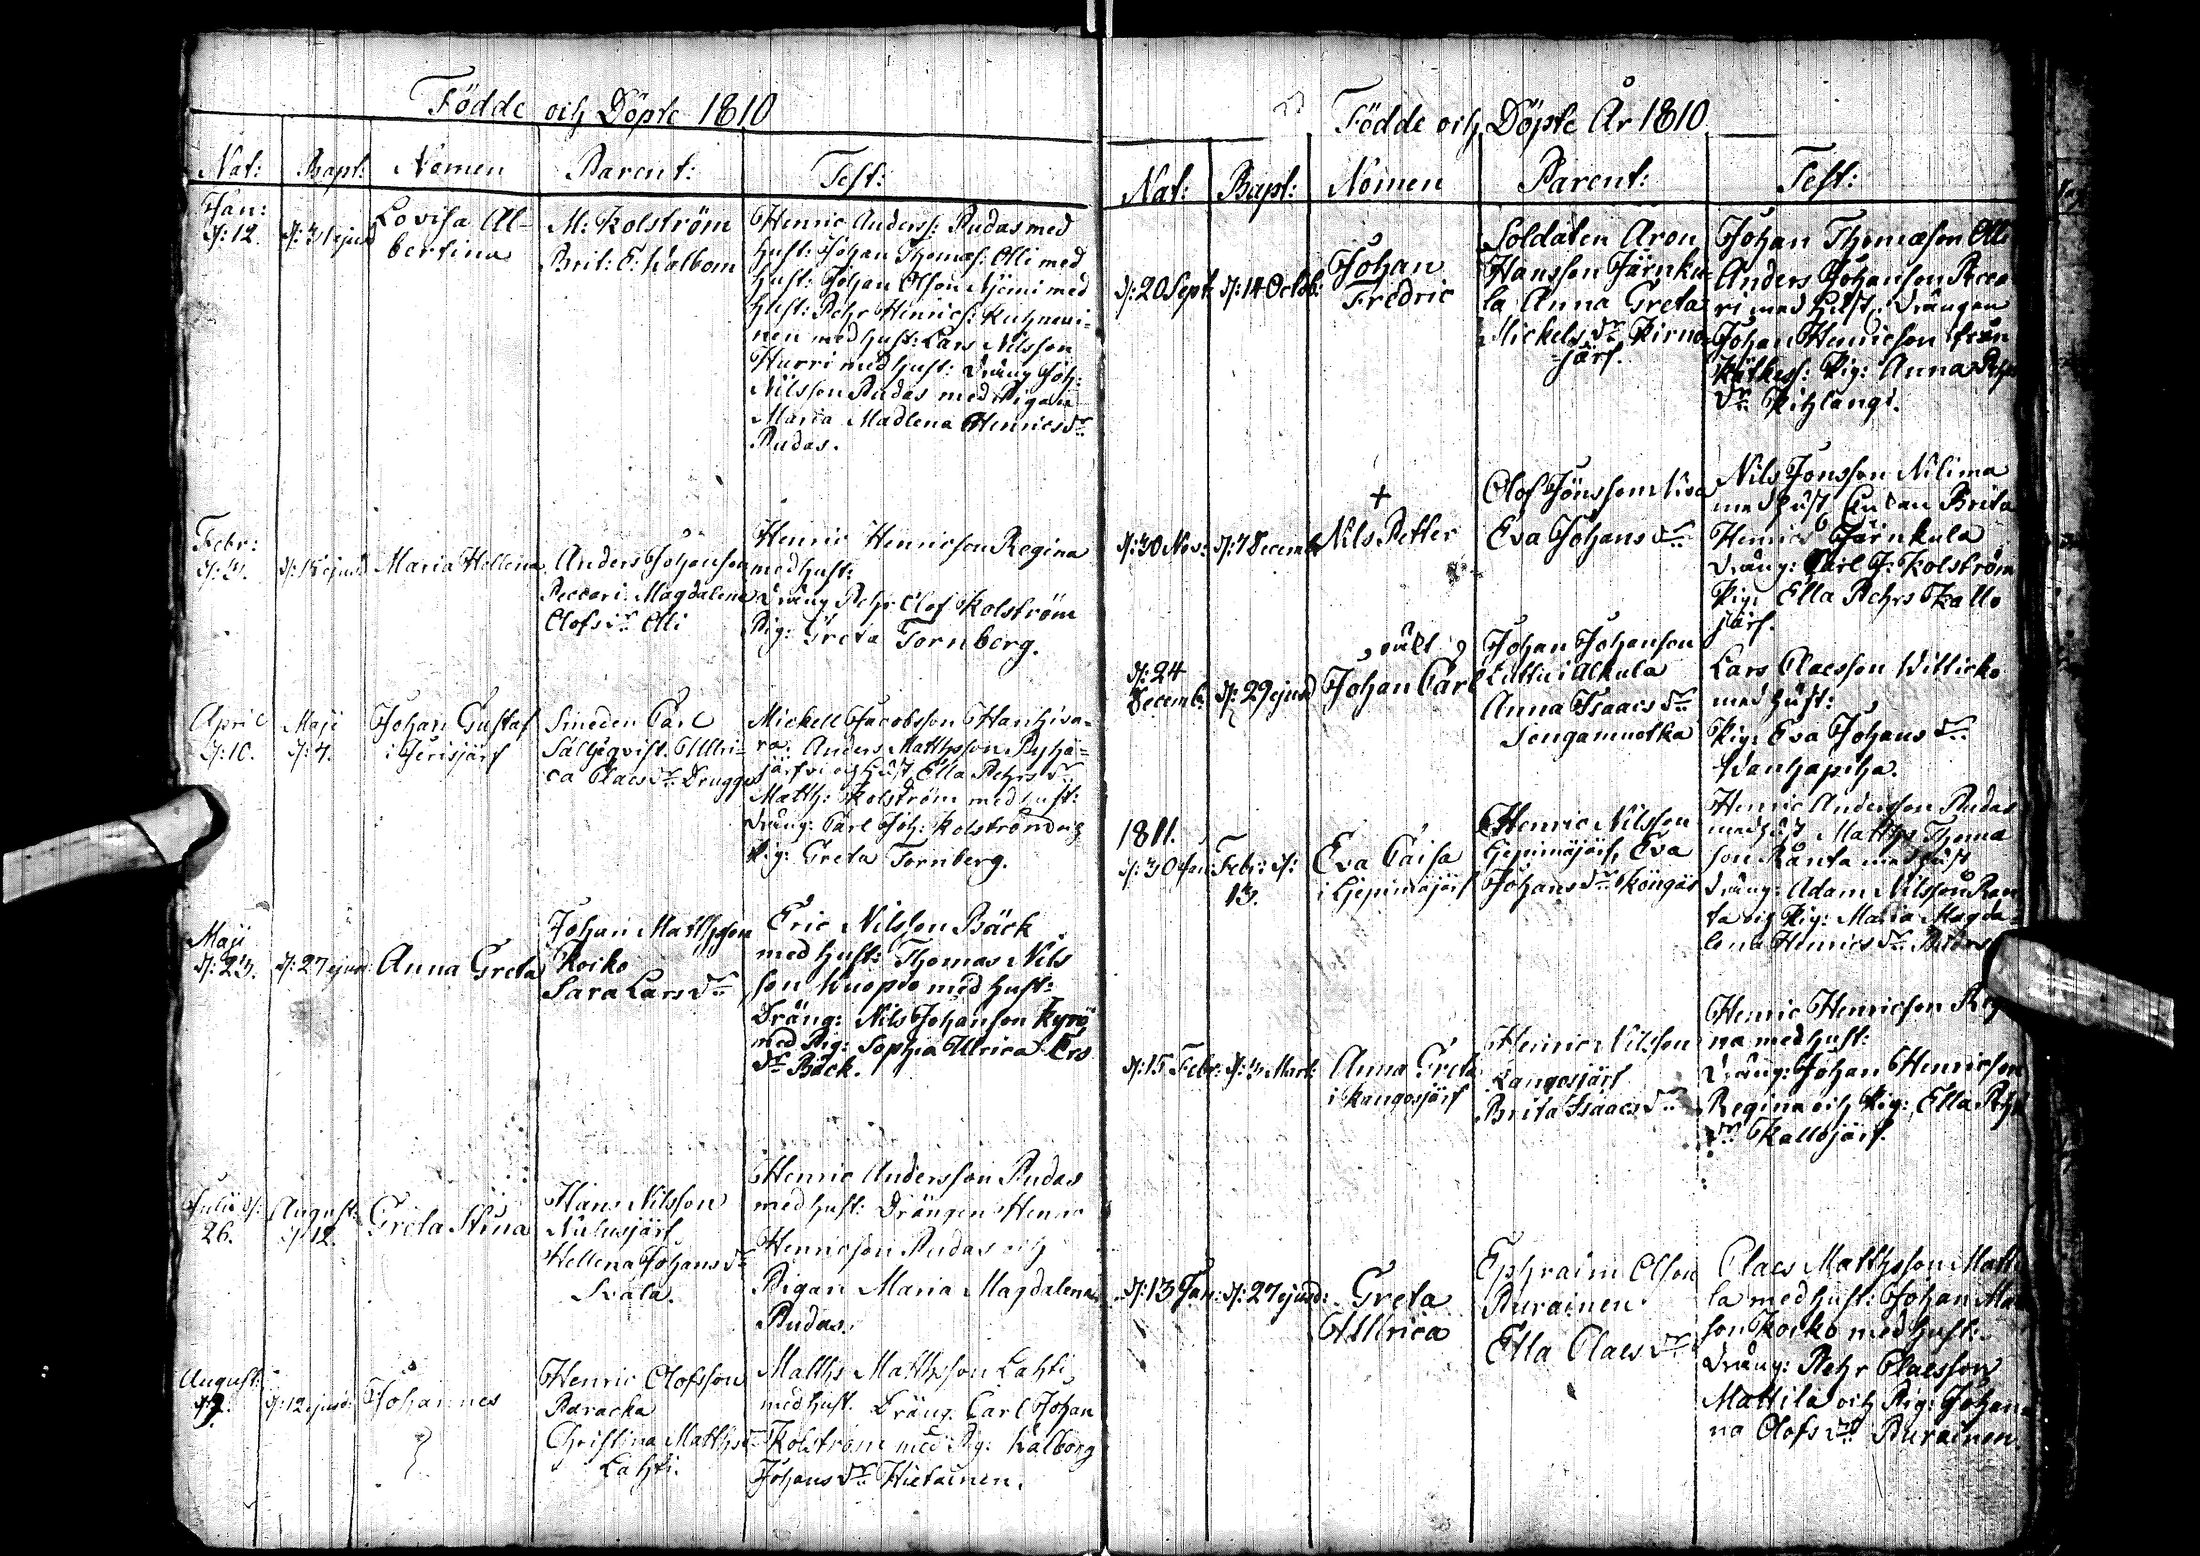 Födde och Döpte 1810
Nat: Bapt: Nomen Parent: Test:
Jan: d: 12. d: 31 ejusd
Lovisa Al-
bertina
M: Kolström
Brit: E: Walbom
Henric Anderss: Rudas med
hust: Johan Thomæs: Olli med
hust: Johan Olsson Njemi med
hust: Pehr Henrics:
nen med hust: Lars Nilsson
Hurri med hust: Dräng Joh:
Nilsson Rudas med Pigan
Maria Madlena Henricsdr
Rudas.
Febr:
d: 3. ejusd
Maria Hellena
Anders Johanson
Peccari Magdalena
Olofsdr Olli
Henric Henricson Regina
med hust:
Dräng Pehr Olof Kolström
Pig: Greta Tornberg.
April
d: 10.
Maji
d: 4.
Johan Gustaf
i Jerisjärf
Smeden Carl
Sälgqvist. Ullri-
ca Claesdr Drugge
Mickell Jacobsson Hanhiva-
ra. Anders Matthsson Pyhä-
järfvi och hust Ella Pehrsdr
Matth: Kolström med hust:
Dräng: Carl Joh: Kolström och
Pig: Greta Tornberg.
Maji
d: 23.
d: 27 ejusd:
Anna Greta
Johan Matthsson
Koiko
Sara Larsdr
Eric Nilsson Bäck
med hust: Thomas Nils
son Kuoppo med hust:
Dräng: Nils Johanson Kyrö
med Pig: Sophia Ullrica Ers
dr Bäck.
Julii d:
26.
August:
d: 12.
Greta Stina
Hans Nilsson
Nulusjärf
Hellena Johansdr
Svala.
Henric Andersson Rudas
med hust: Drängen Henric
Henricson Rudas och
Pigan Maria Magdalena
Rudas.
August:
d: 12 ejusd:
Johannes
Henric Olofsson
Paracka
Christina Matthsdr
Lahti.
Matths Matthsson Lahti
med hust. Dräng. Carl Johan
Kolström med Pig: Walborg
Johansdr Hietainen.
Födde och Döpte År 1810
Nat: Bapt: Nomen Parent: Test:
d: 20 Sept d: 14 Octob:
Johan
Fredric
Soldaten Aron
Hansson Järnku-
la Anna Greta
Mickelsdr Kirno-
järf.
Johan Thomæson Olli
Anders Johanson Pecca
ri med hust, Drängen
Johan Henricson från
Kätkes: Pig: Anna Pehrs
dr Kihlangi.
d: 30 Nov: d: 7 Decemb
+
Nils Petter
Olof Jönsson
Eva Johansdr
Nils Jonsson Nilima
med hust Enkan Brita
Henrics Järnkula
Dräng: Carl J: Kolström
Pig: Ella Pehrs Kallo
järf.
d: 24
Decemb: d: 29 ejusd
Johan Carl
Johan Johanson
Luttu i Alkula
Anna Isaacsdr
Songamuotka
Lars Claesson Witticko
med hust:
Pig: Eva Johansdr
Wanhapiha.
1811.
d: 30 Jan: Febr: d:
13.
Eva Caisa
i Ljepimäjärf
Henric Nilsson
Ljepimäjärf, Eva
Johansdr Köngäs
Henric Andersson Rudas
med hust Matths Thoma
son Ranta med hust
Dräng: Adam Nilsson Ran
ta och Pig: Maria Magda-
lena Henricsdr Rudas
d: 15 Febr: d: 3 Mart:
Anna Greta
i Kangosjärf
Henric Nilsson
Kangosjärf
Brita Isaacsdr
Henric Henricson Regi
na med hust:
Dräng: Johan Henricson
Regina och Pig: Ella Pehrs
dr Kallojärf.
d: 13 Jan: d: 27 ejusd:
Greta
Ullrica
Ephraim Olson
Purainen
Ella Claesdr
Claes Matthsson Matti
la med hust: Johan Mat
son Koiko med hust:
Dräng: Pehr Claesson
Mattila och Pig: Johan
na Olofsdr Purainen.